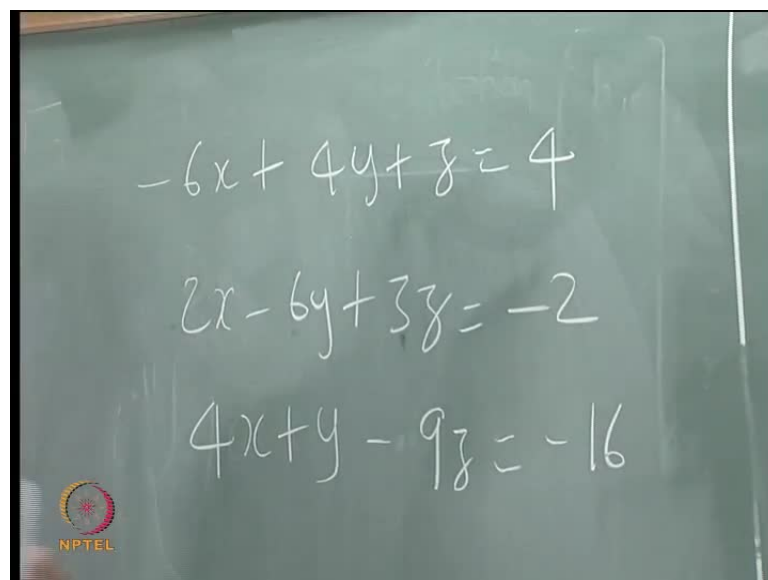 -6x + 4y + z = 4
2x - 6y + 3z = -2
4x + y - 9z = -16
NPTEL